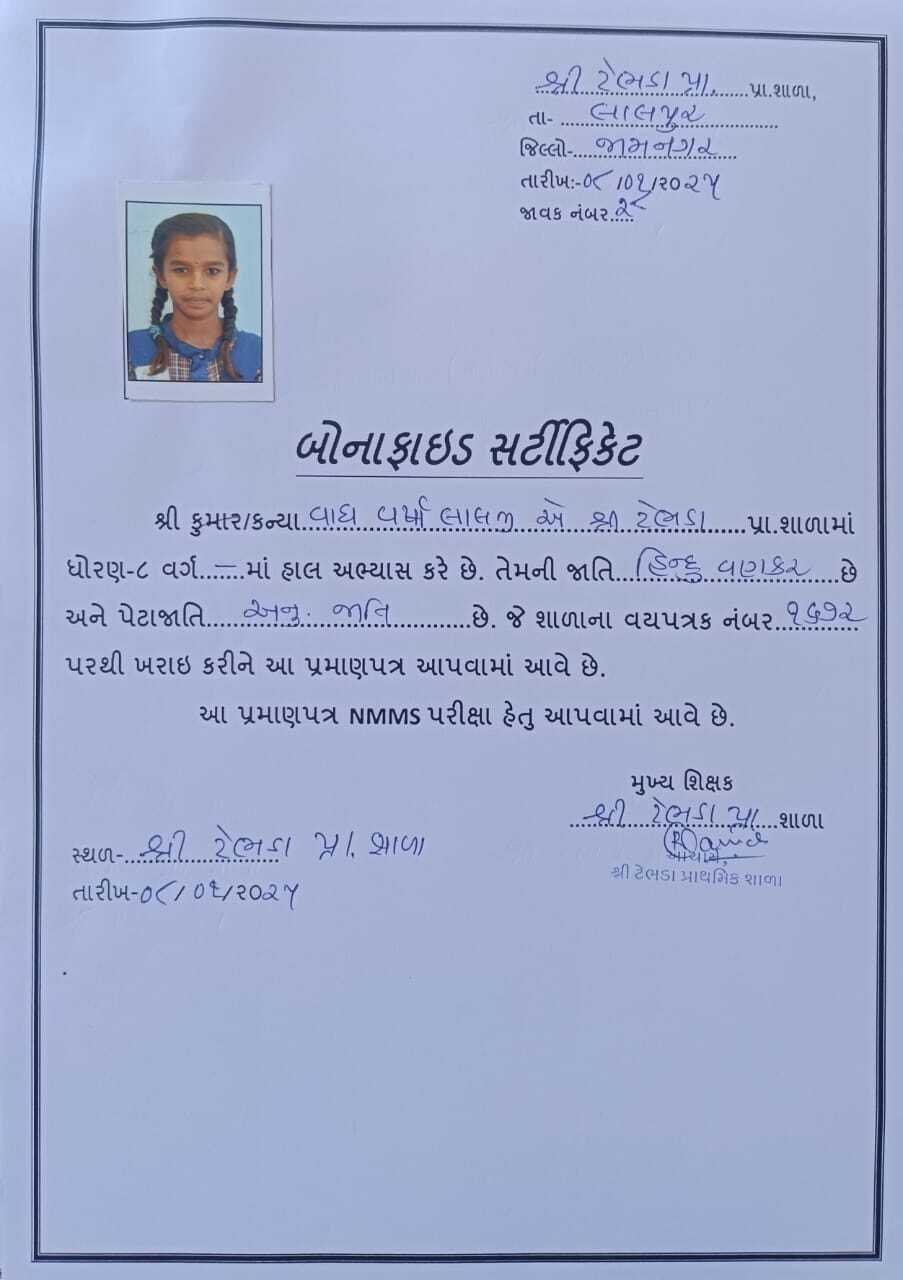 શ્રી ટેભડા પ્રા. પ્રા.શાળા,
તા- લાલપુર
જિલ્લો- જામનગર
તારીખ:-૦૮/૦૧/૨૦૨૫
જાવક નંબર.....
બોનાફાઇડ સર્ટીફિકેટ
શ્રી કુમાર/કન્યા વાઘ વર્ષા લાલજી એ શ્રી ટેભડા પ્રા.શાળામાં
ધોરણ-૮ વર્ગ...—..માં હાલ અભ્યાસ કરે છે. તેમની જાતિ હિન્દુ વણકર છે
અને પેટાજાતિ અનુ. જાતિ છે. જે શાળાના વયપત્રક નંબર ૧૬૭૨
પરથી ખરાઇ કરીને આ પ્રમાણપત્ર આપવામાં આવે છે.
આ પ્રમાણપત્ર NMMS પરીક્ષા હેતુ આપવામાં આવે છે.
મુખ્ય શિક્ષક
શ્રી ટેભડા પ્રા. શાળા
આચાર્ય,
શ્રી ટેભડા પ્રાથમિક શાળા
સ્થળ- શ્રી ટેભડા પ્રા. શાળા
તારીખ-૦૮/૦૧/૨૦૨૫